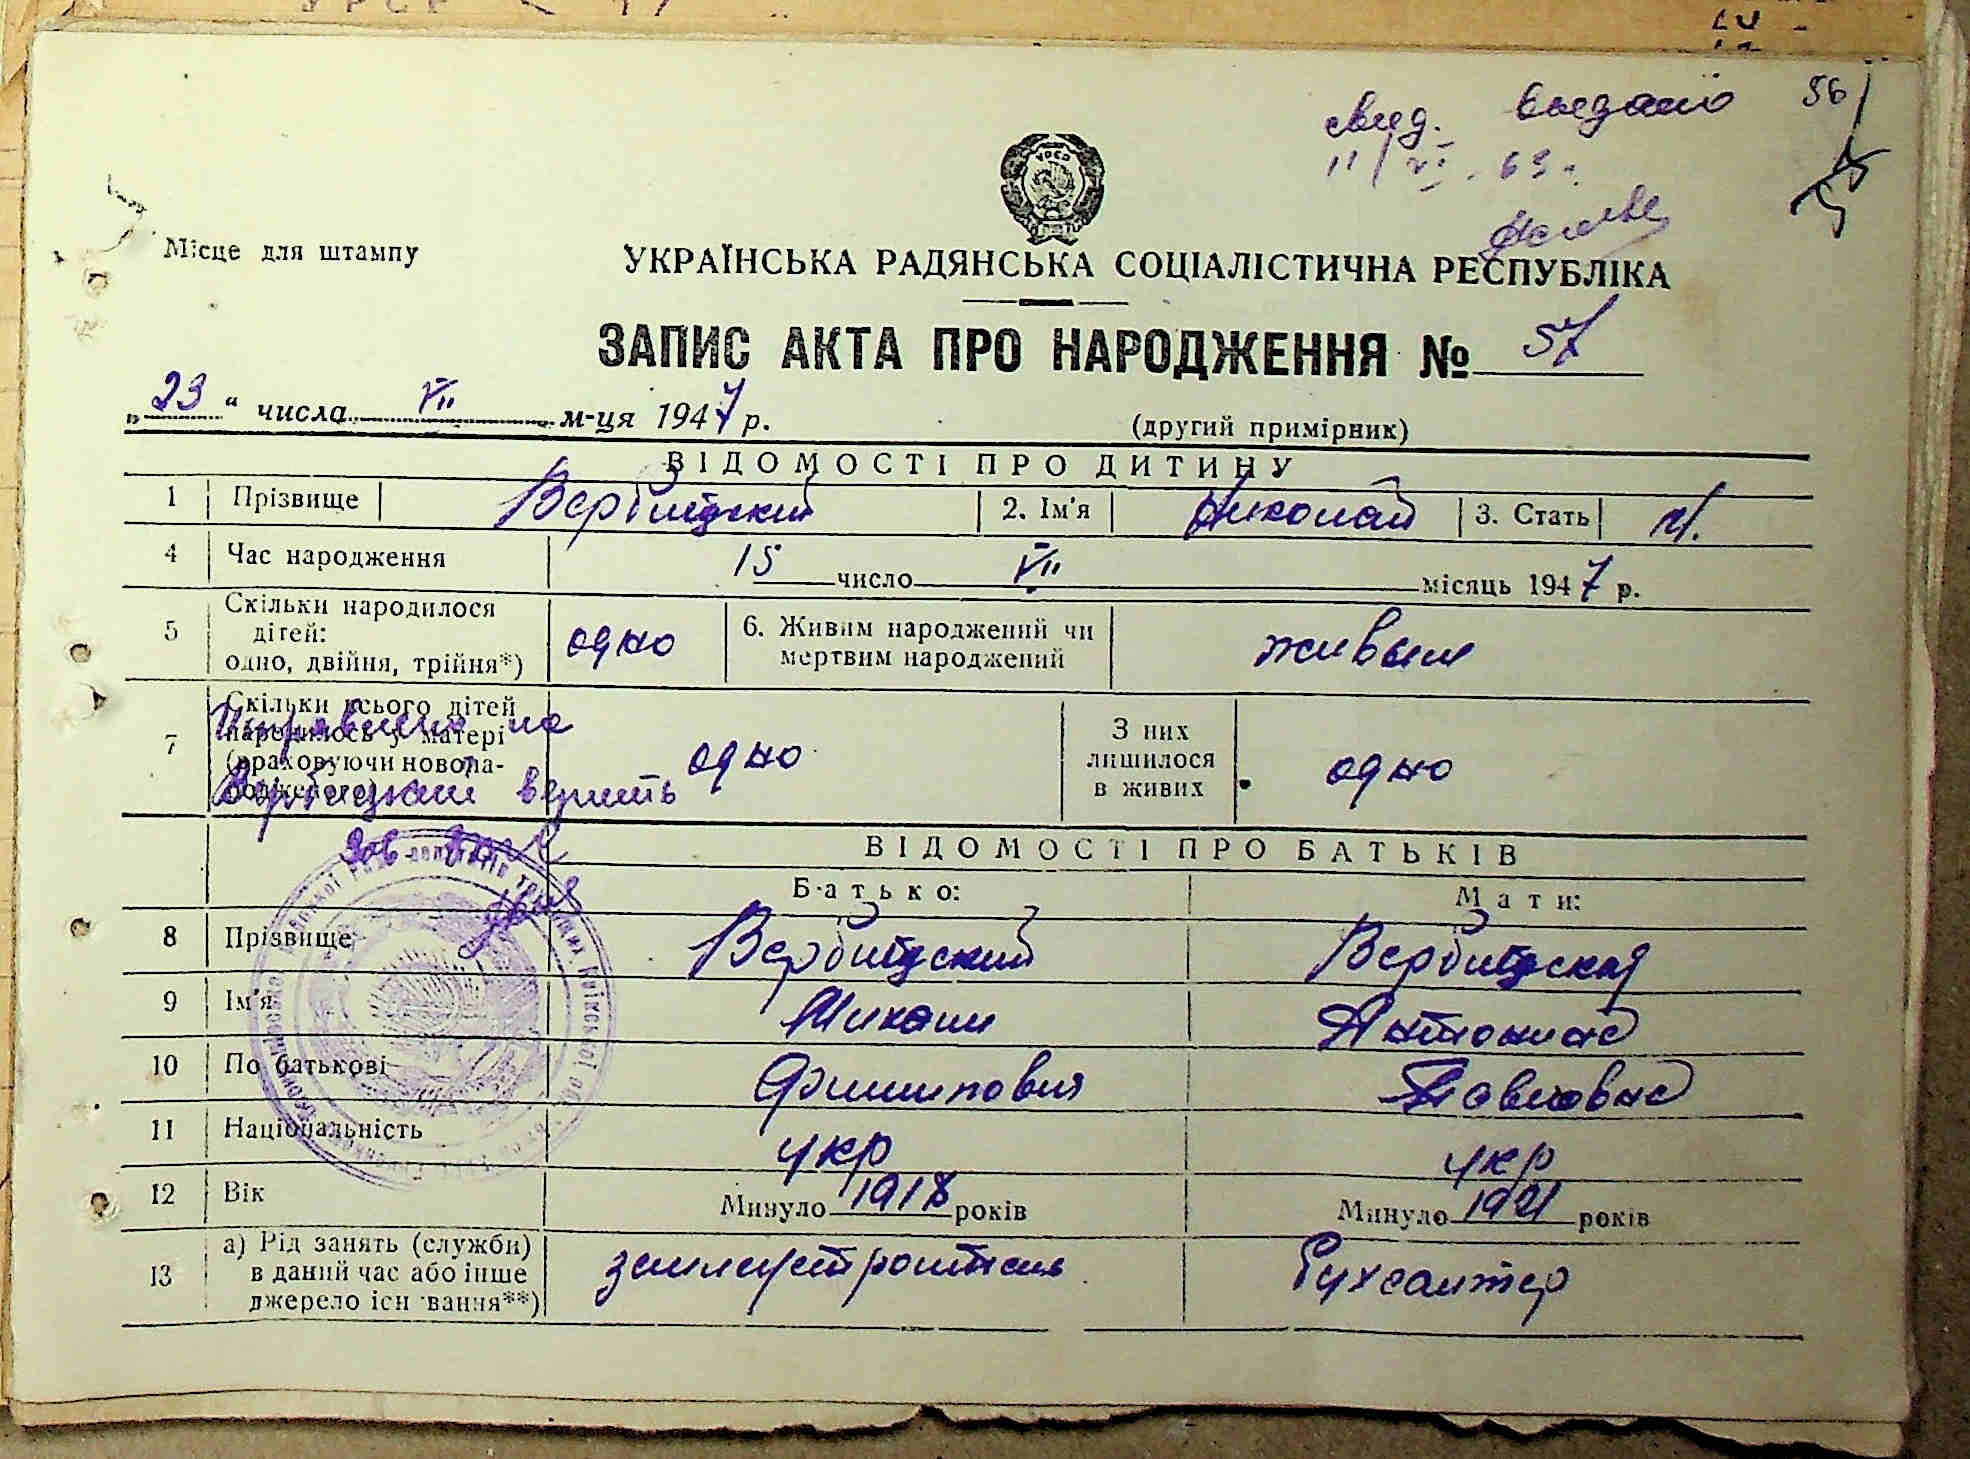 56
свид. выдано
11/VI. 63 г.
УРСР
Місце для штампу
УКРАЇНСЬКА РАДЯНСЬКА СОЦІАЛІСТИЧНА РЕСПУБЛІКА
ЗАПИС АКТА ПРО НАРОДЖЕННЯ № 57
„23“ числа VII м-ця 1947 р. (другий примірник)
ВІДОМОСТІ ПРО ДИТИНУ
1 Прізвище Вербицкий 2. Ім'я Николай 3. Стать м.
4 Час народження 15 число VII місяць 1947 р.
5 Скільки народилося дітей: одно, двійня, трійня*) одно 6. Живим народжений чи мертвим народжений живым
7 Скільки всього дітей народилось у матері (враховуючи новонародженого) одно З них лишилося в живих одно
Исправлено на
Вербицкий верить
Зав.
ВІДОМОСТІ ПРО БАТЬКІВ
Батько: Мати:
8 Прізвище Вербицкий Вербицкая
9 Ім'я Антонина
10 По батькові Филиппович Павловна
11 Національність укр укр
12 Вік Минуло 1918 років Минуло 1921 років
13 а) Рід занять (служби) в даний час або інше джерело існування**) землеустроитель Бухгалтер